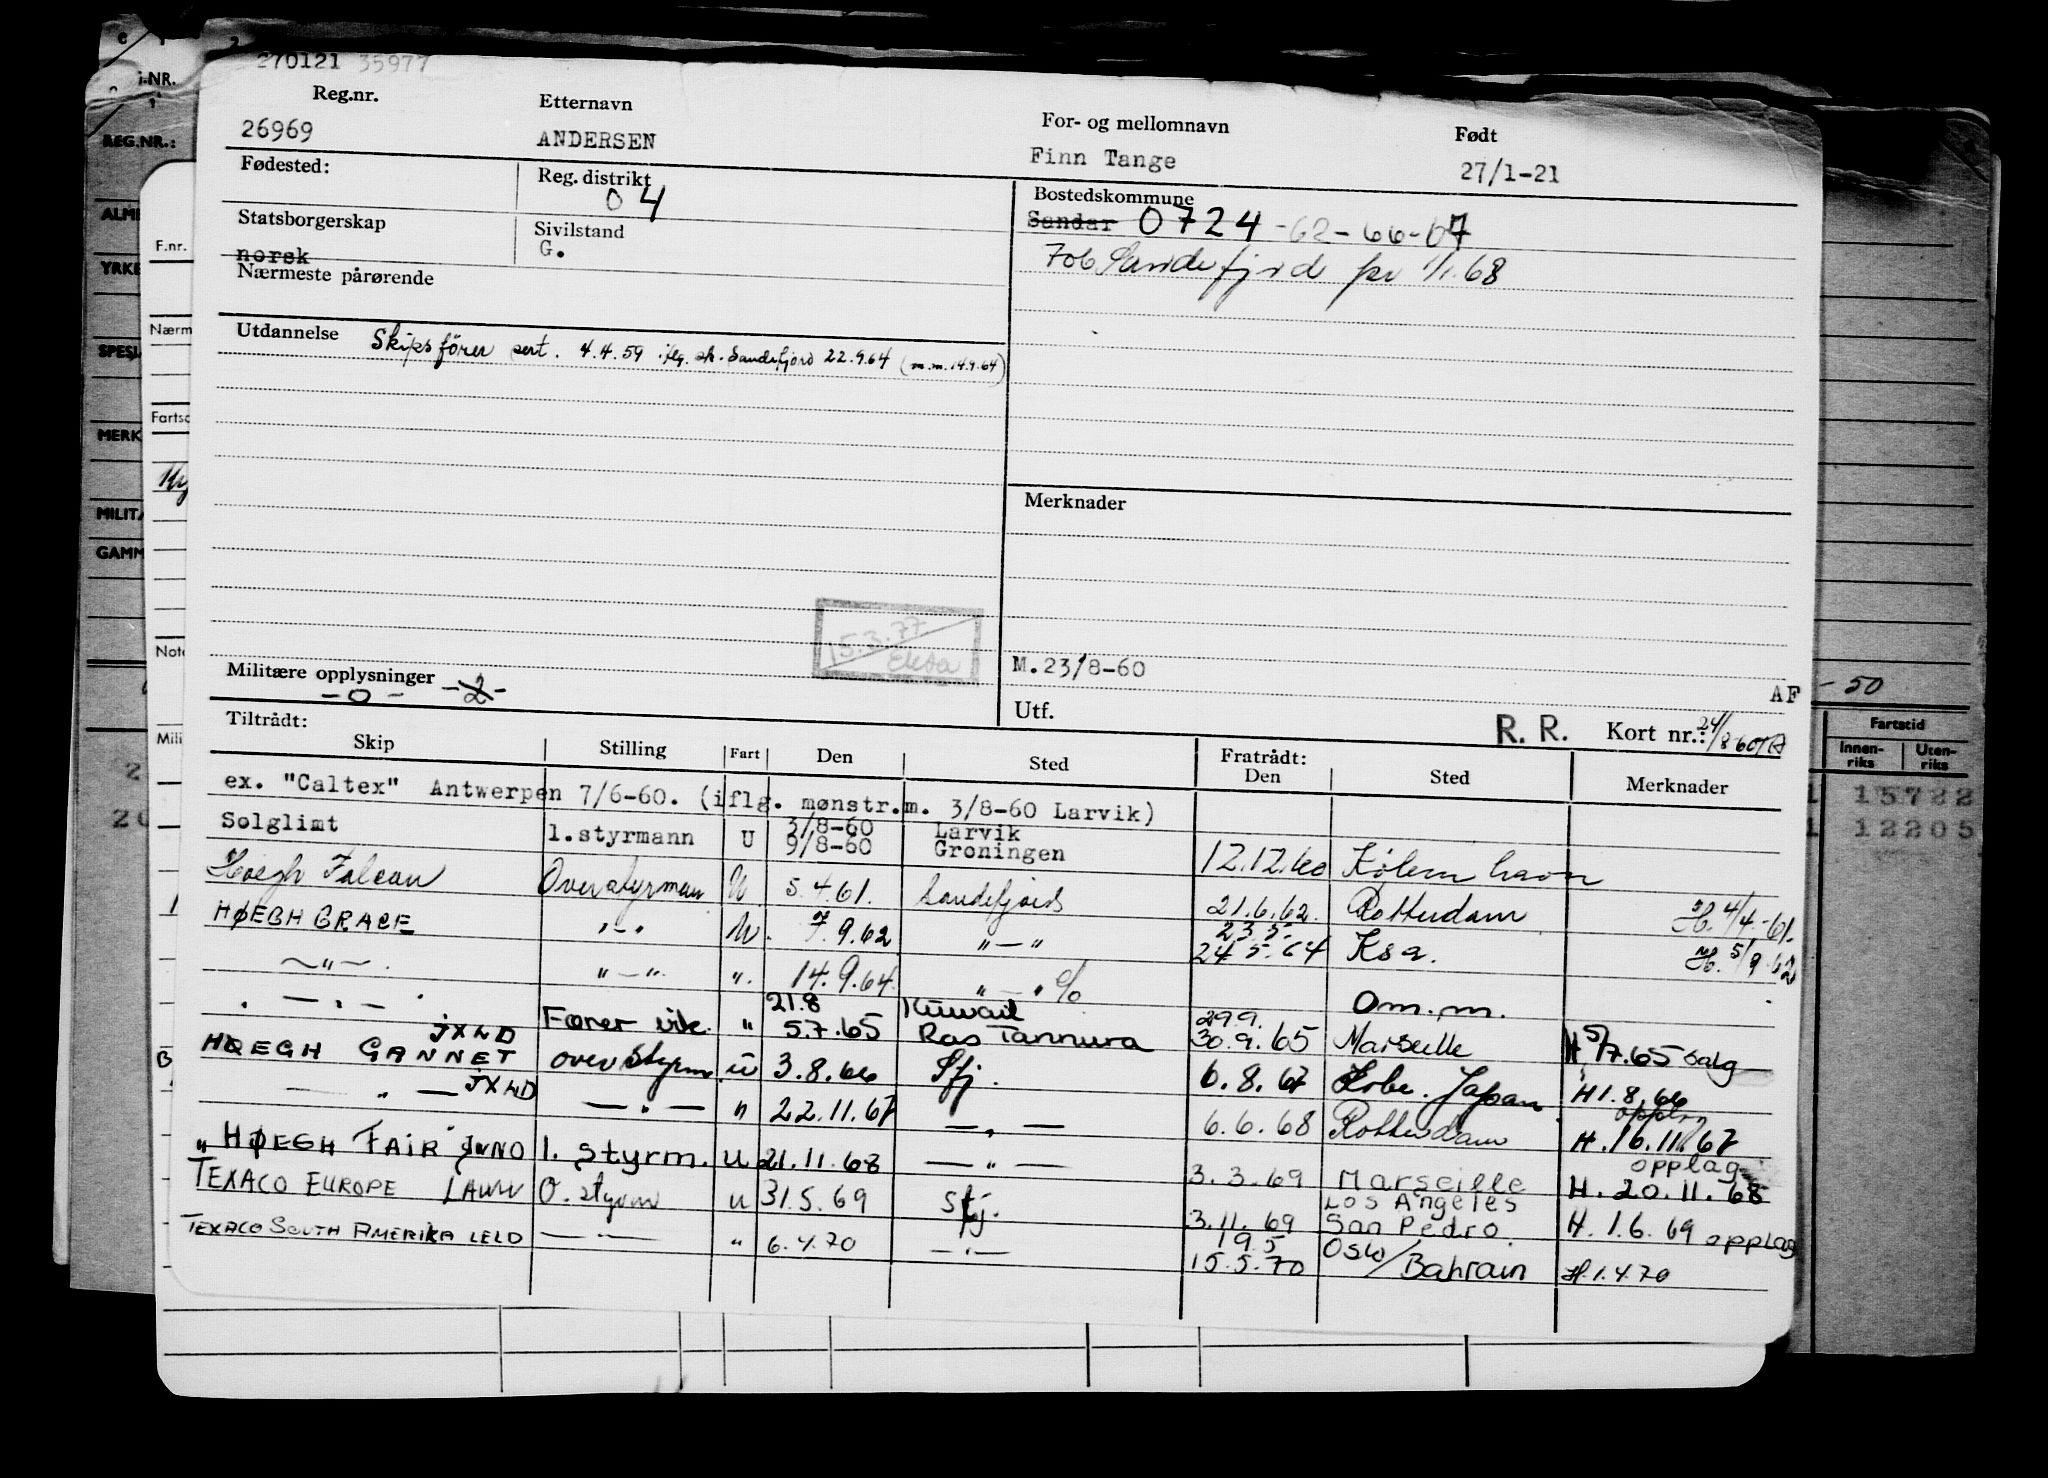 270121 35977
Reg.nr. Etternavn For- og mellomnavn Født
26969 ANDERSEN Finn Tange 27/1-21
Fødested: Reg. distrikt Bostedskommune
04 Sandar 0724 -62-66-67
Statsborgerskap Sivilstand
norsk G. 706 Sandefjord pr 1/1.68
Nærmeste pårørende
Utdannelse Skipsfører sert. 4.4.59 iflg. sk. Sandefjord 22.9.64 (m.m. 14.9.64)
Merknader
15.3.77
Militære opplysninger M.23/8-60
-0- -2- AF
Utf. R. R. Kort nr.: 24/8-60
Tiltrådt: Fratrådt:
Skip Stilling Fart Den Sted Den Sted Merknader
ex. "Caltex" Antwerpen 7/6-60. (iflg. mønstr.m. 3/8-60 Larvik)
Solglimt 1.styrmann U 3/8-60 Larvik
9/8-60 Groningen 12.12.60 København
Høegh Falcon Overstyrman U 5.4.61. Sandefjord 21.6.62. Rotterdam H. 4/4-61.
HØEGH GRACE "-" U. 7.9.62 "—" 23.5. 24.5.64 Ksa. H. 5/9-62
—"— "—" ". 14.9.64 "—" % Om.m.
"—"—" Fører vik. " 21.8 5.7.65 Kuwait Ras Tannura 29.9. 30.9.65 Marseille H 5/7.65 salg
HØEGH GANNET JXWD overstyrm. u 3.8.66 Sfj. 6.8.67 Kobe. Japan H 1.8.66
— " — JXWD — " — " 22.11.67 — " — 6.6.68 Rotterdam opplag H. 16.11.67
" HØEGH FAIR" 1. styrm. u 21.11.68 — " — 3.3.69 Marseille opplag H. 20.11.68
TEXACO EUROPE O. styrm u 31.5.69 Sfj. 3.11.69 Los Angeles San Pedro. H. 1.6.69 opplag
TEXACO SOUTH AMERIKA LELD — " — " 6.4.70 — " — 19.5 15.5.70 Oslo/Bahrain H.1.4.70
-NR.
REG.NR.:
F.nr.
Nærm
Fartsc
MERK
MILIT
GAMM
Note
Mili
- 50
Fartstid
Innen-riks Uten-riks
15722
12205